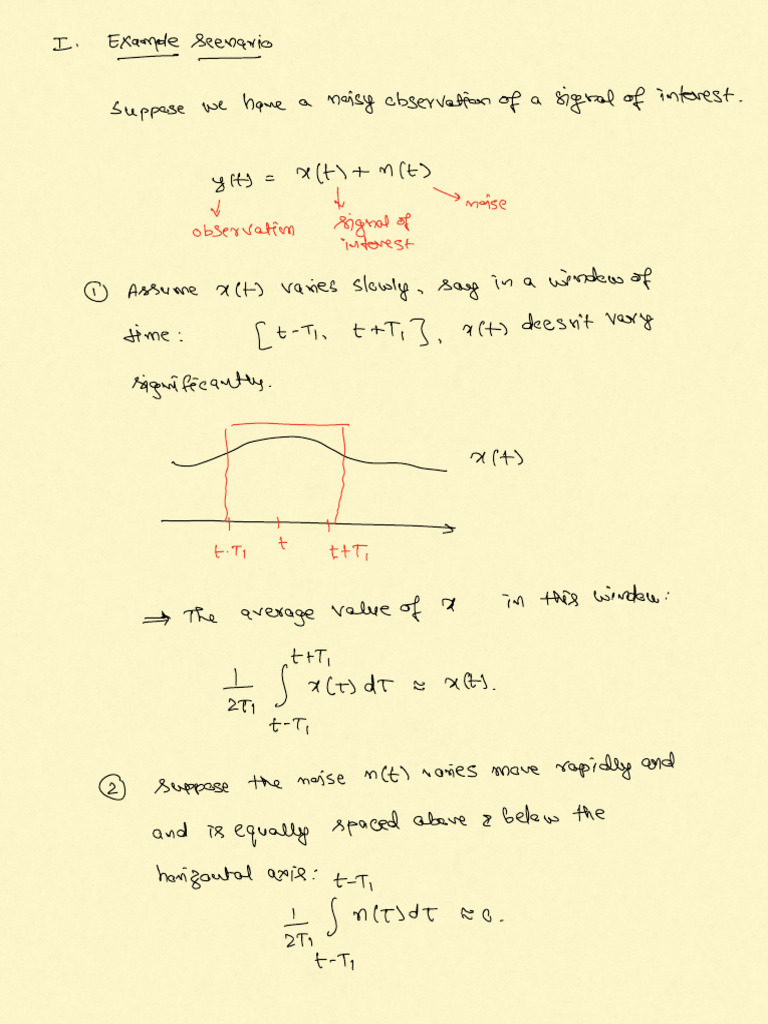 I. Example Scenario
Suppose we have a noisy observation of a signal of interest.
y(t) = x(t) + n(t)
observation signal of interest noise
① Assume x(t) varies slowly, say in a window of
time: [t-T₁, t+T₁], x(t) doesn't vary
significantly.
x(t)
t-T₁ t t+T₁
⇒ The average value of x in this window:
1/2T₁ ∫_{t-T₁}^{t+T₁} x(τ)dτ ≈ x(t).
② Suppose the noise n(t) varies more rapidly and
and is equally spaced above & below the
horizontal axis:
1/2T₁ ∫_{t-T₁}^{t-T₁} n(τ)dτ ≈ 0.